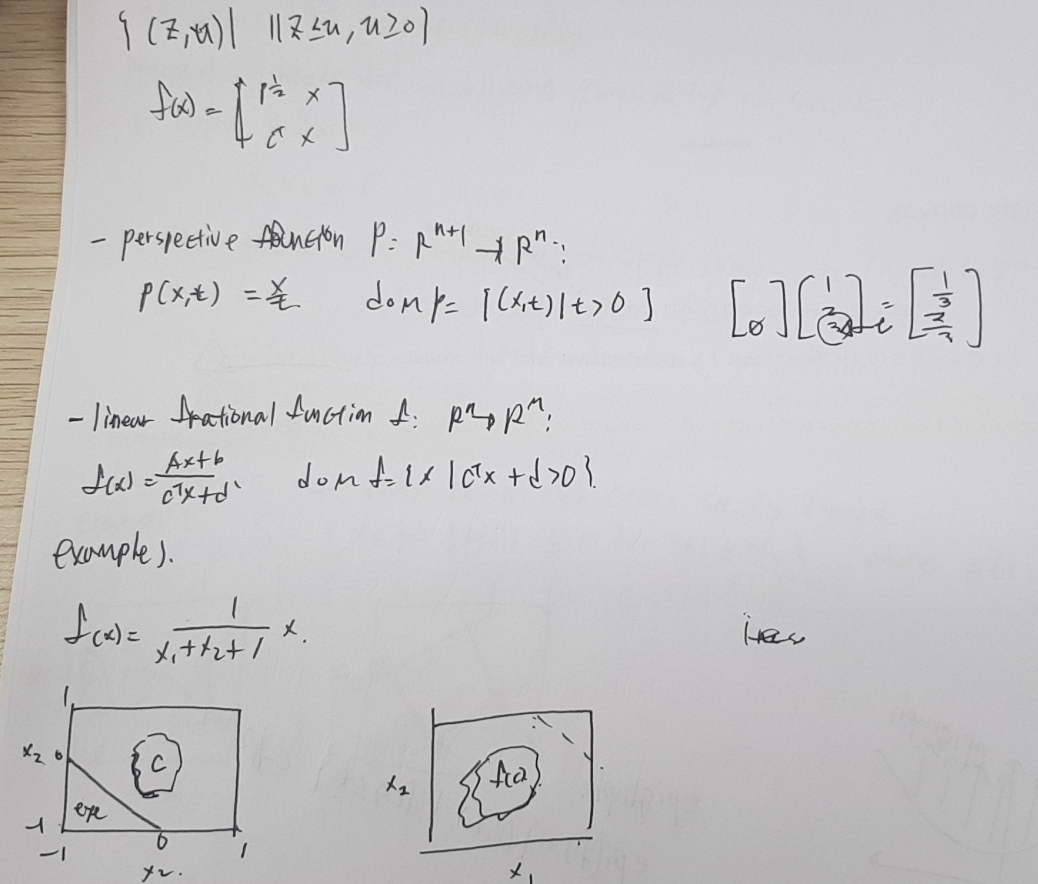 { (z,u) | ||z ≤ u, u ≥ 0}
f(x) = [ P^½ x
c^T x ]
- perspective function P: R^{n+1} → R^n:
P(x,t) = x/t dom p = {(x,t) | t > 0}
- linear frational function f: R^n → R^m:
f(x) = (Ax+b)/(c^T x+d) dom f = {x | c^T x + d > 0}.
examples.
f(x) = 1/(x₁+x₂+1) x.
1
x₂ 0 C
-1
-1 0 1
x₂.
x₂
x₁